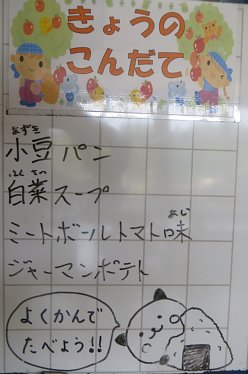 きょうの
こんだて
あずき
小豆パン
白菜スープ
ミートボールトマト味
あじ
ジャーマンポテト
よくかんで
たべよう!!